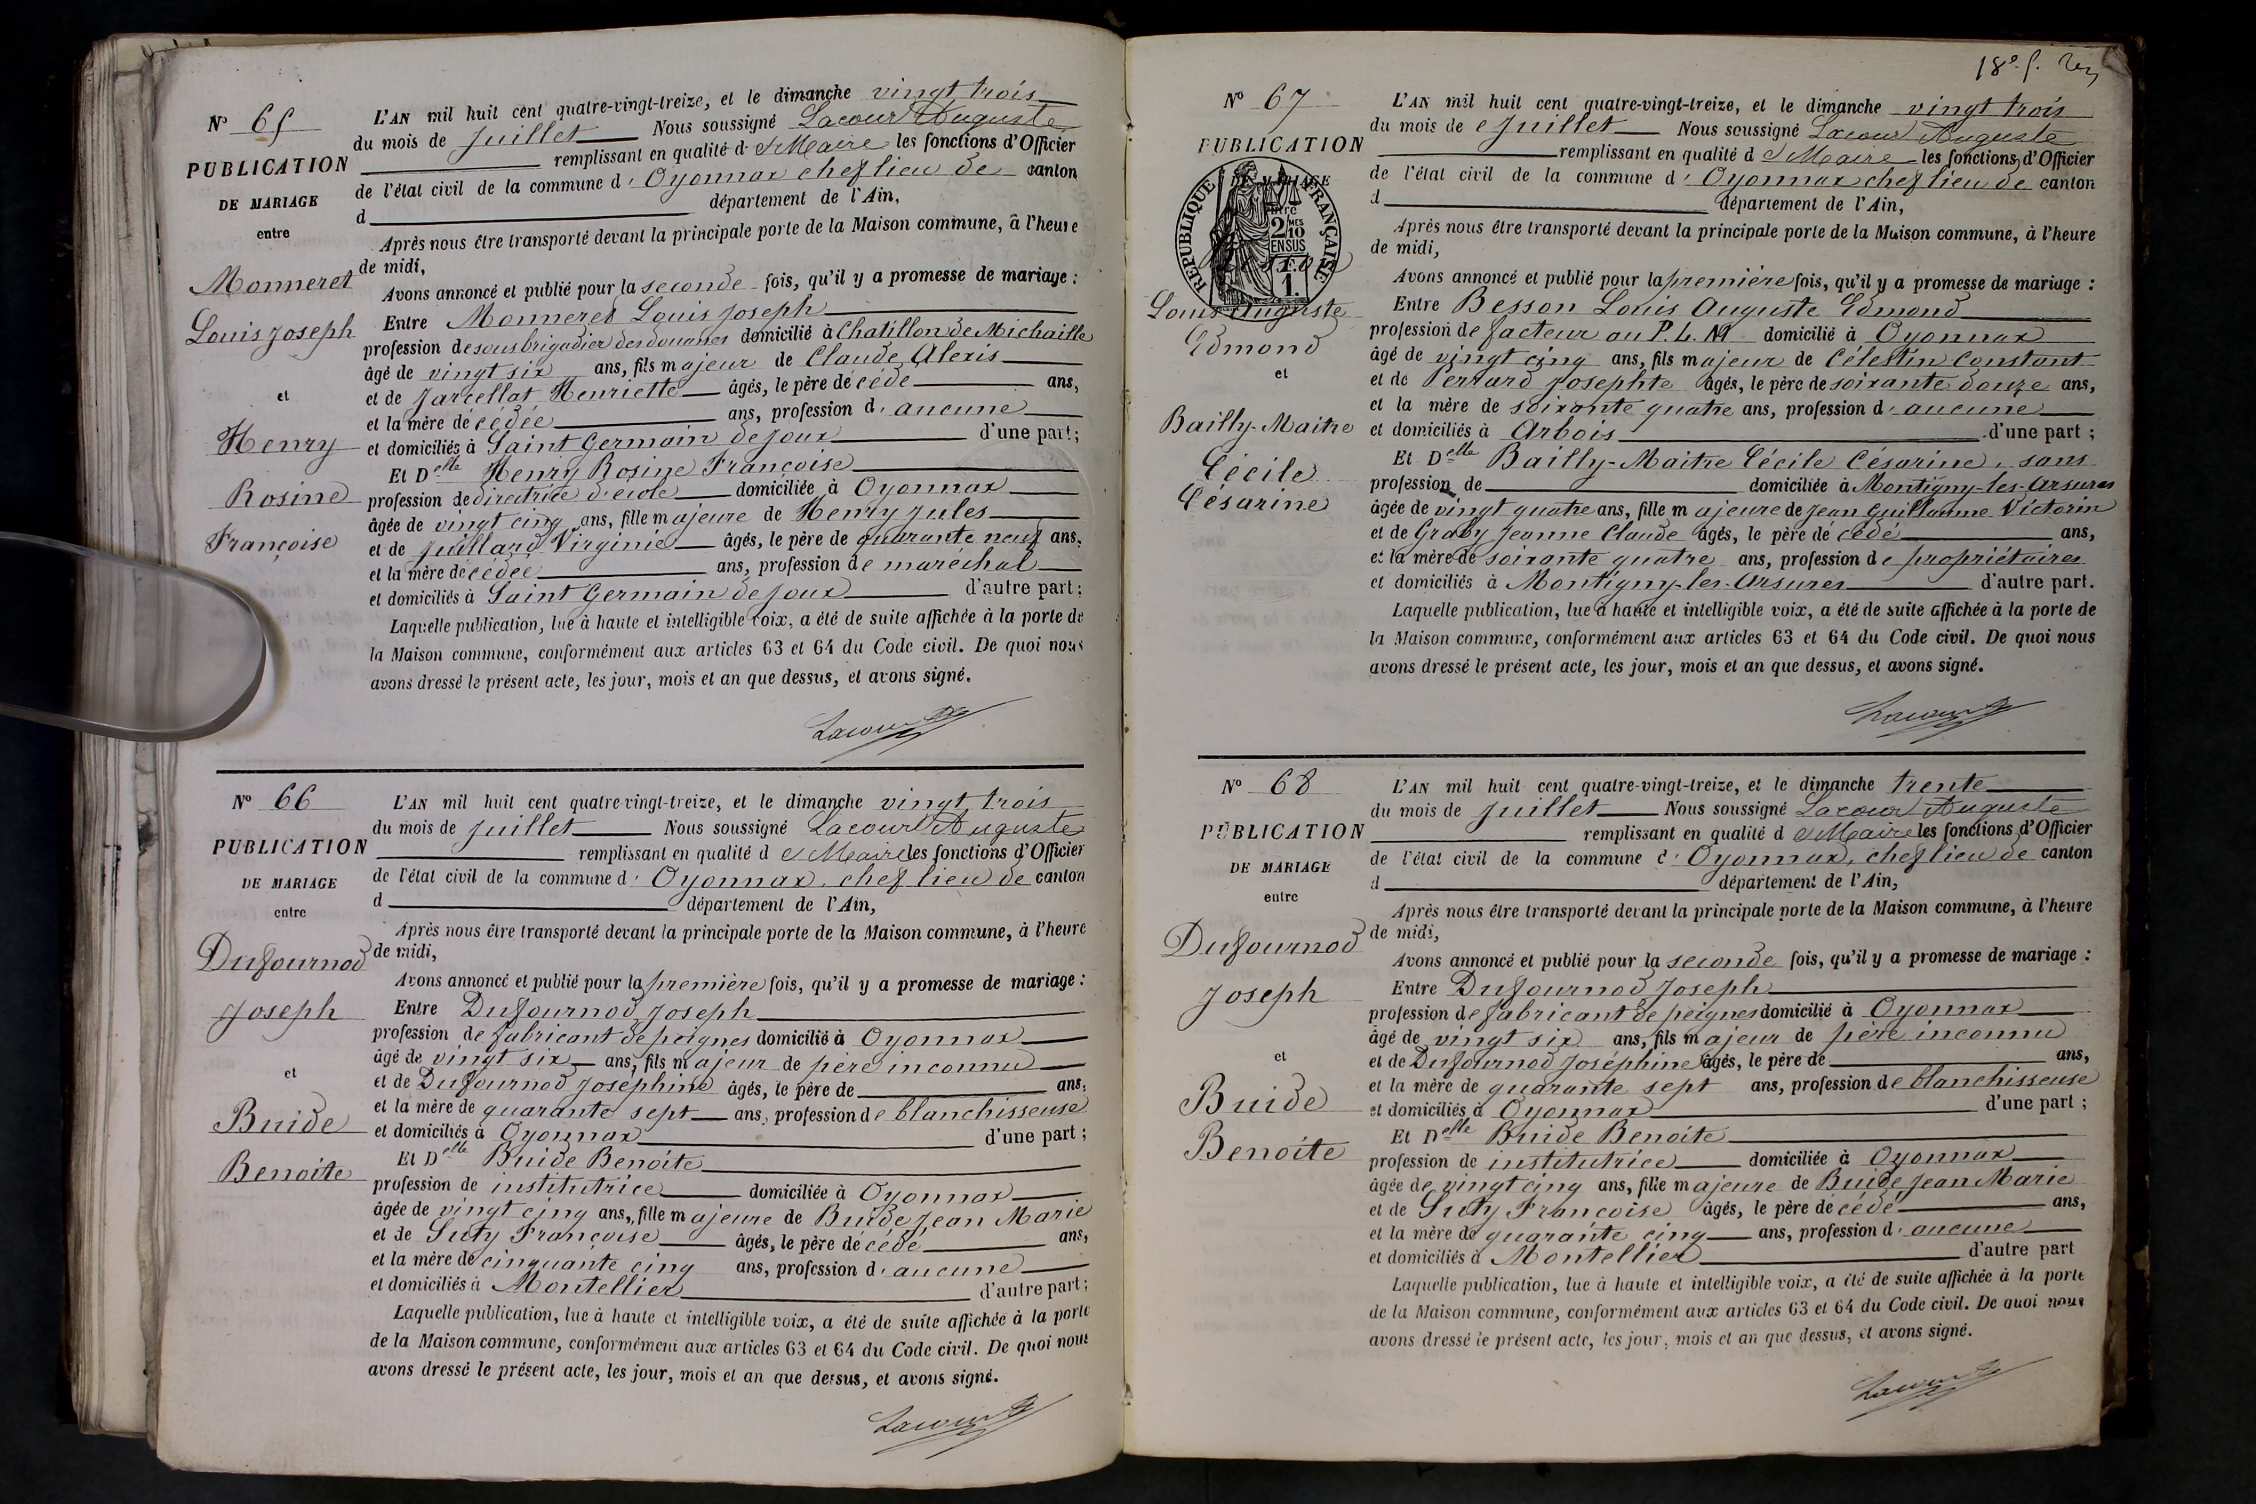 Nº 65
PUBLICATION
DE MARIAGE
entre
Monneret
Louis Joseph
et
Henry
Rosine
Françoise
L'AN mil huit cent quatre-vingt-treize, et le dimanche vingt trois
du mois de Juillet Nous soussigné Lacour Auguste
remplissant en qualité de Maire les fonctions d'Officier
de l'état civil de la commune d'Oyonnax chef lieu de canton
d département de l'Ain,
Après nous être transporté devant la principale porte de la Maison commune, à l'heure
de midi,
Avons annoncé et publié pour la seconde fois, qu'il y a promesse de mariage :
Entre Monneret Louis Joseph
profession de sous brigadier des douanes domicilié à Chatillon de Michaille
âgé de vingt six ans, fils majeur de Claude Alexis
et de Jarcellat Henriette âgés, le père décédé ans,
et la mère décédée ans, profession d'aucune
et domiciliés à Saint Germain de Joux d'une part ;
Et Delle Henry Rosine Françoise
profession de directrice d'école domiciliée à Oyonnax
âgée de vingt cinq ans, fille majeure de Henry Jules
et de Juillard Virginie âgés, le père de quarante neuf ans,
et la mère décédée ans, profession de maréchal
et domiciliés à Saint Germain de Joux d'autre part ;
Laquelle publication, lue à haute et intelligible voix, a été de suite affichée à la porte de
la Maison commune, conformément aux articles 63 et 64 du Code civil. De quoi nous
avons dressé le présent acte, les jour, mois et an que dessus, et avons signé.
Lacour
Nº 66
PUBLICATION
DE MARIAGE
entre
Dufournod
Joseph
et
Buide
Benoite
L'AN mil huit cent quatre-vingt-treize, et le dimanche vingt trois
du mois de Juillet Nous soussigné Lacour Auguste
remplissant en qualité de Maire les fonctions d'Officier
de l'état civil de la commune d'Oyonnax, chef lieu de canton
d département de l'Ain,
Après nous être transporté devant la principale porte de la Maison commune, à l'heure
de midi,
Avons annoncé et publié pour la première fois, qu'il y a promesse de mariage :
Entre Dufournod Joseph
profession de fabricant de peignes domicilié à Oyonnax
âgé de vingt six ans, fils majeur de père inconnu
et de Dufournod Joséphine âgés, le père de ans,
et la mère de quarante sept ans, profession de blanchisseuse
et domiciliés à Oyonnax d'une part ;
Et Delle Buide Benoite
profession de institutrice domiciliée à Oyonnax
âgée de vingt cinq ans, fille majeure de Buide Jean Marie
et de Suty Françoise âgés, le père décédé ans,
et la mère de cinquante cinq ans, profession d'aucune
et domiciliés à Montellier d'autre part ;
Laquelle publication, lue à haute et intelligible voix, a été de suite affichée à la porte
de la Maison commune, conformément aux articles 63 et 64 du Code civil. De quoi nous
avons dressé le présent acte, les jour, mois et an que dessus, et avons signé.
Lacour
18e f.
Nº 67
PUBLICATION
DE MARIAGE
entre
RÉPUBLIQUE FRANÇAISE
2 MES
10
EN SUS
1.
Louis Auguste
Edmond
et
Bailly-Maitre
Cécile
Césarine
L'AN mil huit cent quatre-vingt-treize, et le dimanche vingt trois
du mois de Juillet Nous soussigné Lacour Auguste
remplissant en qualité de Maire les fonctions d'Officier
de l'état civil de la commune d'Oyonnax chef lieu de canton
d département de l'Ain,
Après nous être transporté devant la principale porte de la Maison commune, à l'heure
de midi,
Avons annoncé et publié pour la première fois, qu'il y a promesse de mariage :
Entre Besson Louis Auguste Edmond
profession de facteur au P. L. M domicilié à Oyonnax
âgé de vingt cinq ans, fils majeur de Célestin Constant
et de Perrard Josephte âgés, le père de soixante douze ans,
et la mère de soixante quatre ans, profession d'aucune
et domiciliés à Arbois d'une part ;
Et Delle Bailly-Maitre Cécile Césarine, sans
profession de domiciliée à Montigny-les-Arsures
âgée de vingt quatre ans, fille majeure de Jean Guillaume Victorin
et de Graby Jeanne Claude âgés, le père décédé ans,
et la mère de soixante quatre ans, profession de propriétaires
et domiciliés à Montigny-les-Arsures d'autre part.
Laquelle publication, lue à haute et intelligible voix, a été de suite affichée à la porte de
la Maison commune, conformément aux articles 63 et 64 du Code civil. De quoi nous
avons dressé le présent acte, les jour, mois et an que dessus, et avons signé.
Lacour
Nº 68
PUBLICATION
DE MARIAGE
entre
Dufournod
Joseph
et
Buide
Benoite
L'AN mil huit cent quatre-vingt-treize, et le dimanche trente
du mois de Juillet Nous soussigné Lacour Auguste
remplissant en qualité de Maire les fonctions d'Officier
de l'état civil de la commune d'Oyonnax, chef lieu de canton
d département de l'Ain,
Après nous être transporté devant la principale porte de la Maison commune, à l'heure
de midi,
Avons annoncé et publié pour la seconde fois, qu'il y a promesse de mariage :
Entre Dufournod Joseph
profession de fabricant de peignes domicilié à Oyonnax
âgé de vingt six ans, fils majeur de père inconnu
et de Dufournod Joséphine âgés, le père de ans,
et la mère de quarante sept ans, profession de blanchisseuse
et domiciliés à Oyonnax d'une part ;
Et Delle Buide Benoite
profession de institutrice domiciliée à Oyonnax
âgée de vingt cinq ans, fille majeure de Buide Jean Marie
et de Suty Françoise âgés, le père décédé ans,
et la mère de quarante cinq ans, profession d'aucune
et domiciliés à Montellier d'autre part
Laquelle publication, lue à haute et intelligible voix, a été de suite affichée à la porte
de la Maison commune, conformément aux articles 63 et 64 du Code civil. De quoi nous
avons dressé le présent acte, les jour, mois et an que dessus, et avons signé.
Lacour